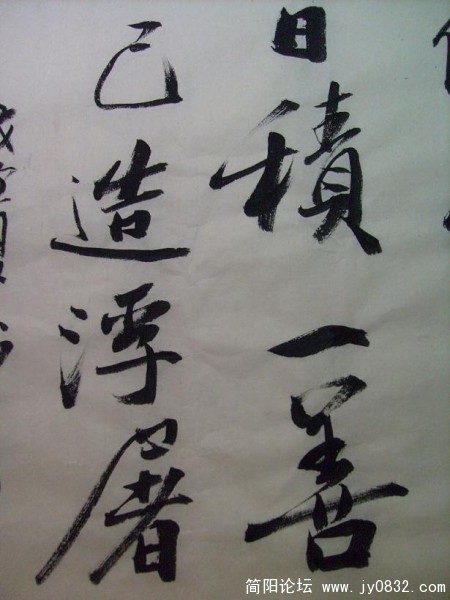 日積一善
己造浮屠
简阳论坛 www.jy0832.com